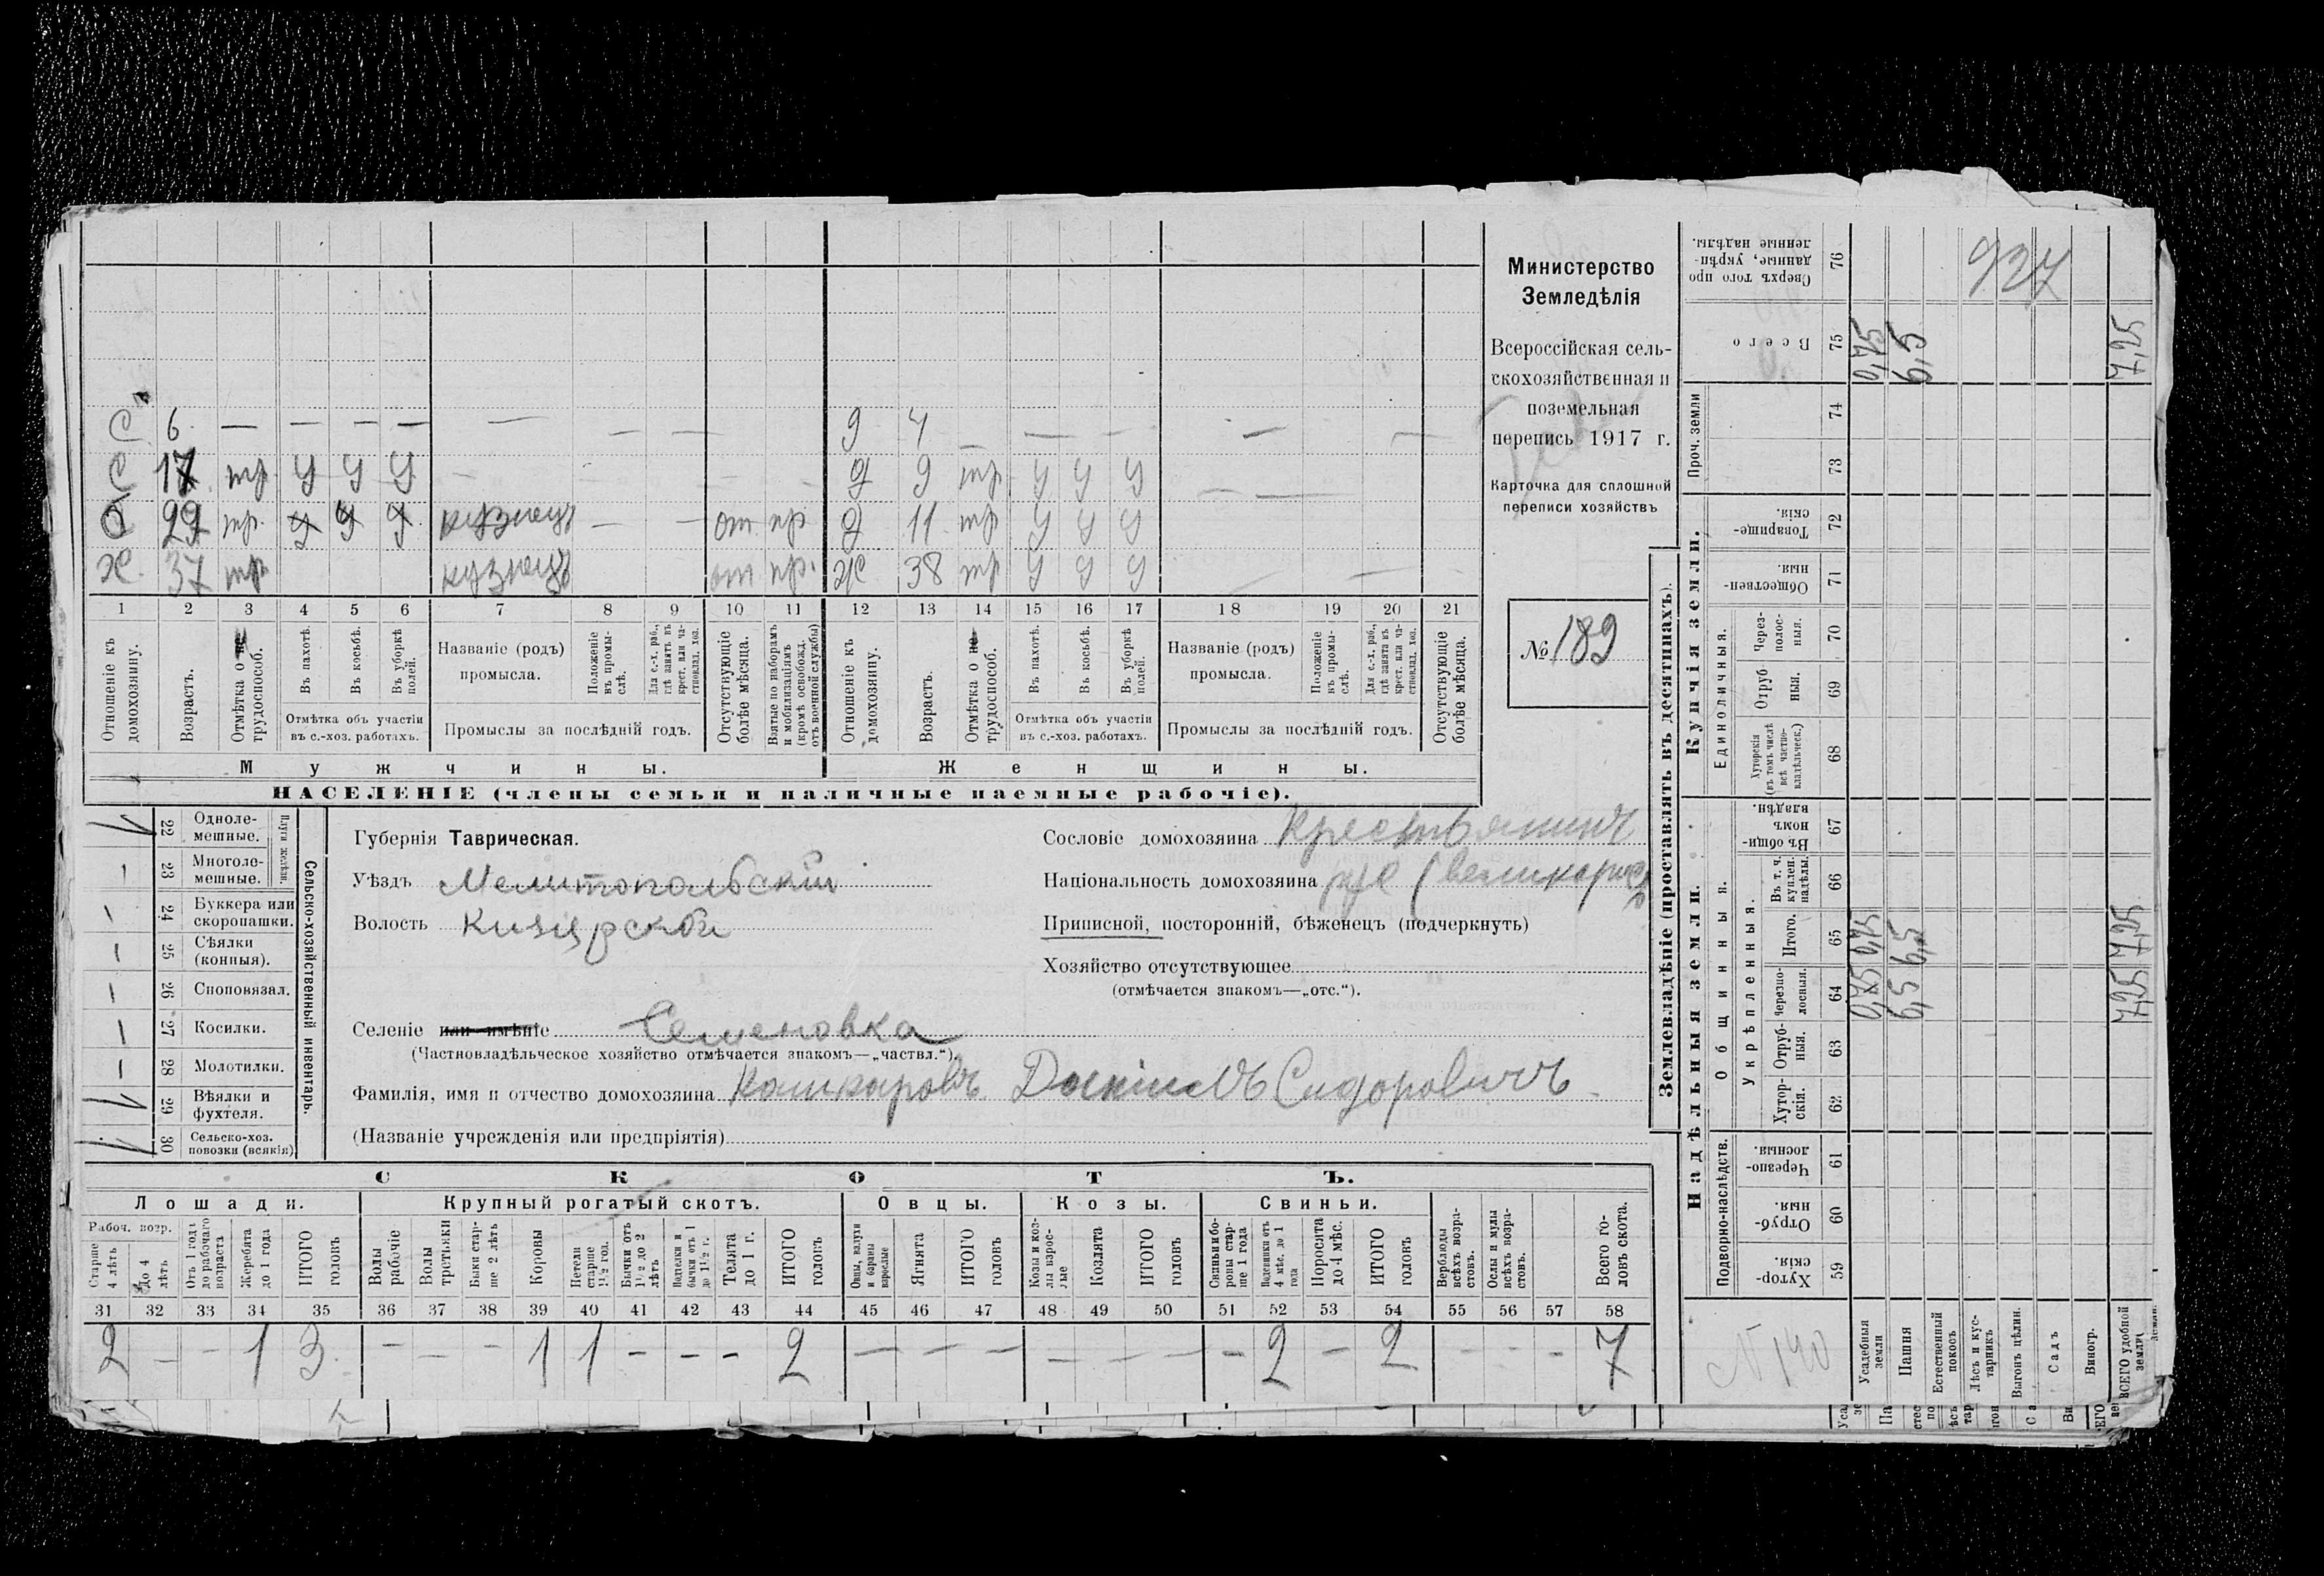 С 6 — — — — — — — д 4 — — — — —
С 17 тр у у у — — — д 9 тр у у у — —
29 тр. у у у кузнецъ — — от пр д 11 тр у у у
Х. 37 тр кузнецъ от пр. Ж 38 тр у у у — —
1 2 3 4 5 6 7 8 9 10 11 12 13 14 15 16 17 18 19 20 21
Отношеніе къ домохозяину.
Возрастъ.
Отмѣтка о не трудоспособ.
Въ пахотѣ.
Въ косьбѣ.
Въ уборкѣ полей.
Отмѣтка объ участіи въ с.-хоз. работахъ.
Названіе (родъ) промысла.
Положеніе въ промыслѣ.
Для с.-х. раб., гдѣ занятъ въ крест. или частновлад. хоз.
Промыслы за послѣдній годъ.
Отсутствующіе болѣе мѣсяца.
Взятые по наборамъ и мобилизаціямъ (кромѣ освобожд. отъ военной службы)
Отношеніе къ домохозяину.
Возрастъ.
Отмѣтка о не трудоспособ.
Въ пахотѣ.
Въ косьбѣ.
Въ уборкѣ полей.
Отмѣтка объ участіи въ с.-хоз. работахъ.
Названіе (родъ) промысла.
Положеніе въ промыслѣ.
Для с.-х. раб., гдѣ занята въ крест. или частновлад. хоз.
Промыслы за послѣдній годъ.
Отсутствующіе болѣе мѣсяца.
Мужчины.
Женщины.
НАСЕЛЕНІЕ (члены семьи и наличные наемные рабочіе).
Министерство
Земледѣлія
Всероссійская сель-
скохозяйственная и
поземельная
перепись 1917 г.
Карточка для сплошной
переписи хозяйствъ
№ 189
Сельско-хозяйственный инвентарь.
Плуги желѣзн.
22 Однолемешные. 1
23 Многолемешные. —
24 Буккера или скоропашки. —
25 Сѣялки (конныя). —
26 Сноповязал. —
27 Косилки. —
28 Молотилки. —
29 Вѣялки и фухтеля. 1
30 Сельско-хоз. повозки (всякія) 1
Губернія Таврическая.
Уѣздъ Мелитопольскій
Волость Кизіярской
Селеніе или имѣніе Семеновка
(Частновладѣльческое хозяйство отмѣчается знакомъ—„частвл.“).
Фамилія, имя и отчество домохозяина Кашкаровъ Сидоровичъ
(Названіе учрежденія или предпріятія)
Сословіе домохозяина Крестьянинъ
Національность домохозяина рус (великорос
Приписной, посторонній, бѣженецъ (подчеркнуть)
Хозяйство отсутствующее
(отмѣчается знакомъ—„отс.“).
СКОТЪ.
Лошади. Крупный рогатый скотъ. Овцы. Козы. Свиньи.
Рабоч. возр.
Старше 4 лѣтъ
До 4 лѣтъ
Отъ 1 года до рабочаго возраста
Жеребята до 1 года
ИТОГО головъ
Волы рабочіе
Волы третьяки
Быки старше 2 лѣтъ
Коровы
Нетели старше 1½ год.
Бычки отъ 1½ до 2 лѣтъ
Подтелки и бычки отъ 1 до 1½ г.
Телята до 1 г.
ИТОГО головъ
Овцы, валухи и бараны взрослые
Ягнята
ИТОГО головъ
Козы и козлы взрослые
Козлята
ИТОГО головъ
Свиньи и боровы старше 1 года
Подсвинки отъ 4 мѣс. до 1 года
Поросята до 4 мѣс.
ИТОГО головъ
Верблюды всѣхъ возрастовъ.
Ослы и мулы всѣхъ возрастовъ.
Всего головъ скота.
31 32 33 34 35 36 37 38 39 40 41 42 43 44 45 46 47 48 49 50 51 52 53 54 55 56 57 58
2 — — 1 3 — — — 1 1 — — — 2 — — — — — — — 2 — 2 — — — 7
Землевладѣніе (проставлять въ десятинахъ).
Купчія земли.
Надѣльныя земли.
Сверхъ того проданные, укрѣпленные надѣлы. 76
Всего 75 0,75 6,5 7,25
Проч. земли 74 73
Товарищескія. 72
Общественныя. 71
Единоличныя.
Черезполосныя. 70
Отрубныя. 69
Хуторскія (въ томъ числѣ всѣ частновладѣльческ.) 68
Общинныя.
Въ общинномъ владѣн. 67
Укрѣпленныя.
Въ т. ч. куплен. надѣлы. 66
Итого. 65 0,75 6,5 7,25
Черезполосныя. 64 0,75 6,5 7,25
Отрубныя. 63
Хуторскія. 62
Подворно-наслѣдств.
Черезполосныя. 61
Отрубныя. 60
Хуторскія. 59
937
№ 190
Усадебныя земли
Пашня
Естественный покосъ
Лѣсъ и кустарникъ
Выгонъ цѣлин.
Садъ
Виногр.
ВСЕГО удобной земли